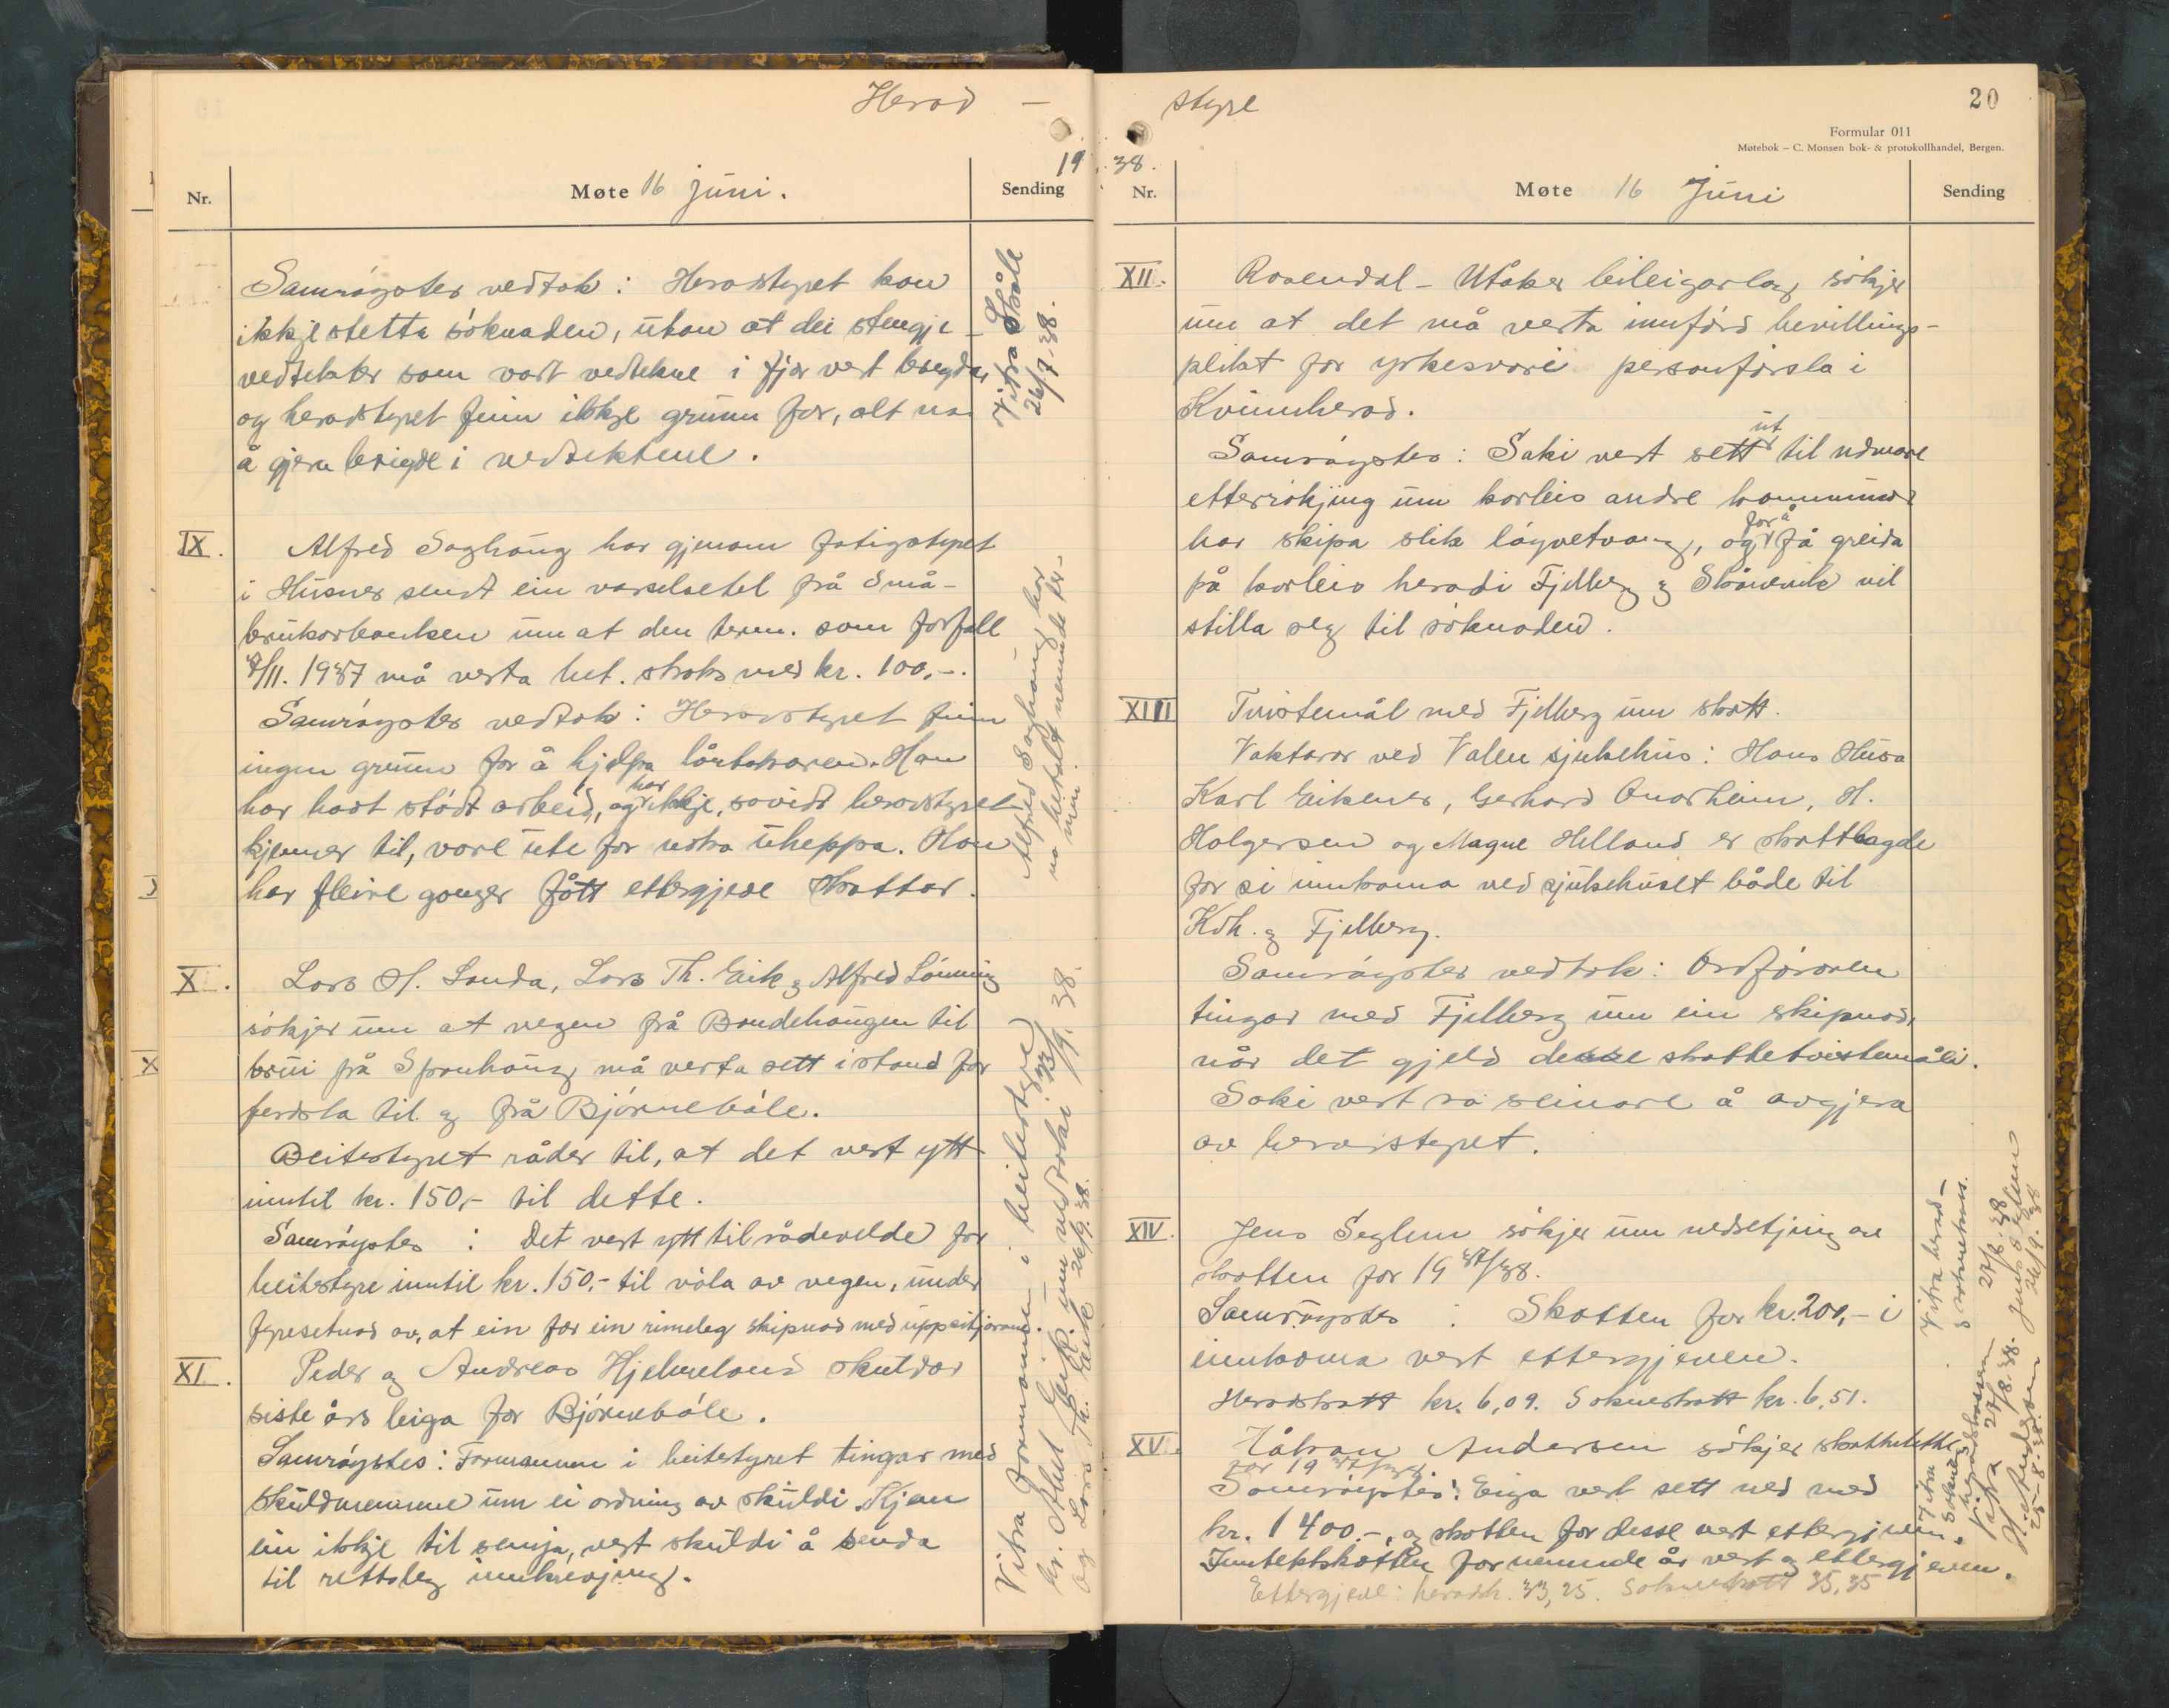 Herad -
19
Nr.
Møte 16 juni.
Sending
Samrøystes vedtok: Heradstyret kan
ikkje stetta søknaden, utan at dei stengje-
vedtekter som vart vedtekne i fjor vert brigda,
og heradstyret finn ikkje grunn for, alt no
å gjera brigde i vedtektene.
Vitra Skåle
26/7-38.
IX.
Alfred Saghaug har gjenom fatigstyret
i Husnes sendt ein varselsetel frå Små-
brukarbanken um at den term. som forfall
8/11. 1937 må verta bet. straks med kr. 100,-.
Samrøystes vedtok: Heradstyret finn
ingen grunn for å hjelpa låntakaren. Han
har hadt stødt arbeid, og har ikkje, sovidt heradstyret
kjenner til, vore ute for noka uheppa. Han
har fleire gonger fått ettergjeve skattar.
Alfred Saghaug har
no betalt nemnde ter-
min.
X.
Lars H. Sunda, Lars Th. Eik og Alfred Lønning
søkjer um at vegen frå Bondehaugen til
brui på Spanhaug må verta sett i stand for
ferdsla til og frå Bjørnebøle.
Beitestyret råder til, at det vert ytt
inntil kr. 150,- til dette.
Samrøystes : Det vert ytt til rådevelde for
beitestyre inntil kr. 150,- til vøla av vegen, under
fyresetnad av, at ein fær ein rimeleg skipnad med uppsitjarane.
XI.
Peder og Andreas Hjelmeland skuldar
siste års leiga for Bjørnebøle.
Samrøystes: Formannen i beitestyret tingar med
skuldmennene um ei ordning av skuldi. Kjem
ein ikkje til semja, vert skuldi å senda
til rettsleg innkrevjing.
Vitra formannen i beitestyre
hr. Eik um vedtaket /9. 38.
og Lars Th. Eik 26/9. 38.
styre
20
Formular 011
Møtebok – C. Monsen bok- & protokollhandel, Bergen.
38.
Nr.
Møte 16 Juni
Sending
XII.
Rosendal - Utåker bileigarlag søkjer
um at det må verta innførd bevillings-
plikt for yrkesvori personførsla i
Kvinnherad.
Samrøystes: Saki vert sett ut til ndmare
ettersøkjing um korleis andre kommunar
har skipa slik løyvetvang, og for å få greida
på korleis heradi Fjelberg og Skånevik vil
stilla seg til søknaden.
XIII
Tvistemål med Fjelberg um skatt.
Vaktarar ved Valen sjukehus: Hans Husa
Karl Eikenes, Gerhard Onarheim, H.
Holgersen og Magne Helland er skattlagde
for si inntkoma ved sjukehuset både til
Kdh. og Fjelberg.
Samrøystes vedtok: Ordføraren
tingar med Fjelberg um ein skipnad,
når det gjeld desse skattetvistemåli.
Saki vert so seinare å avgjera
av heradstyret.
XIV.
Jens Seglem søkjer um nedsetjing av
skatten for 19 37/38.
Samrøystes : Skatten for kr. 200,- i
inntkoma vert ettergjeven.
Heradskatt kr. 6,09. Sokneskatt kr. 6,51.
Vitra herad-
27/8. 38
Jens Seglem
26/9. 38
XV.
Håkon Andersen søkjer skattelette
for 19 37/38
Samrøystes: Eiga vert sett ned med
kr. 1400.-, og skatten for desse vert ettergjeven.
Inntektskatten for nemnde år vert og ettergjeven.
Ettergjeve: heradsk. 33,25. Sokneskatt 35,35
Vitra 27/8. 38.
H. Andersen
25-8-38.